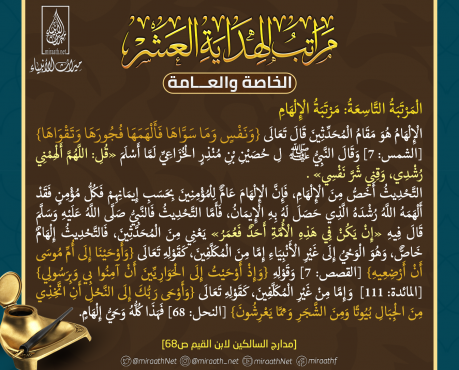 ميراث الأنبياء
miraath.net
مراتب الهداية العشر
الخاصة والعـــامة
الْمَرْتَبَةُ التَّاسِعَةُ: مَرْتَبَةُ الْإِلْهَامِ
الْإِلْهَامُ هُوَ مَقَامُ الْمُحَدَّثِينَ قَالَ تَعَالَى {وَنَفْسٍ وَمَا سَوَّاهَا فَأَلْهَمَهَا فُجُورَهَا وَتَقْوَاهَا}
[الشمس: 7] وَقَالَ النَّبِيُّ ﷺ لِ حُصَيْنِ بِن مُنْذِرٍ الْخُزَاعِيِّ لَمَّا أَسْلَمَ «قُلِ: اللَّهُمَّ أَلْهِمْنِي
رُشْدِي، وَقِنِي شَرَّ نَفْسِي» .
التَّحْدِيثُ أَخَصُّ مِنَ الْإِلْهَامِ، فَإِنَّ الْإِلْهَامَ عَامٌّ لِلْمُؤْمِنِينَ بِحَسَبِ إِيمَانِهِمْ فَكُلُّ مُؤْمِنٍ فَقَدْ
أَلْهَمَهُ اللَّهُ رُشْدَهُ الَّذِي حَصَلَ لَهُ بِهِ الْإِيمَانُ، فَأَمَّا التَّحْدِيثُ فَالنَّبِيُّ صَلَّى اللَّهُ عَلَيْهِ وَسَلَّمَ
قَالَ فِيهِ «إِنْ يَكُنْ فِي هَذِهِ الْأُمَّةِ أَحَدٌ فَعُمَرُ» يَعْنِي مِنَ الْمُحَدَّثِينَ، فَالتَّحْدِيثُ إِلْهَامٌ
خَاصٌّ، وَهُوَ الْوَحْيُ إِلَى غَيْرِ الْأَنْبِيَاءِ إِمَّا مِنَ الْمُكَلَّفِينَ، كَقَوْلِهِ تَعَالَى {وَأَوْحَيْنَا إِلَى أُمِّ مُوسَى
أَنْ أَرْضِعِيهِ} [القصص: 7] وَقَوْلِهِ {وَإِذْ أَوْحَيْتُ إِلَى الْحَوَارِيِّينَ أَنْ آمِنُوا بِي وَبِرَسُولِي}
[المائدة: 111] وَإِمَّا مِنْ غَيْرِ الْمُكَلَّفِينَ، كَقَوْلِهِ تَعَالَى {وَأَوْحَى رَبُّكَ إِلَى النَّحْلِ أَنِ اتَّخِذِي
مِنَ الْجِبَالِ بُيُوتًا وَمِنَ الشَّجَرِ وَمِمَّا يَعْرِشُونَ} [النحل: 68] فَهَذَا كُلُّهُ وَحْيُ إِلْهَامٍ.
[مدارج السالكين لابن القيم ص68]
@miraathNet @miraath_net miraathNet miraathf